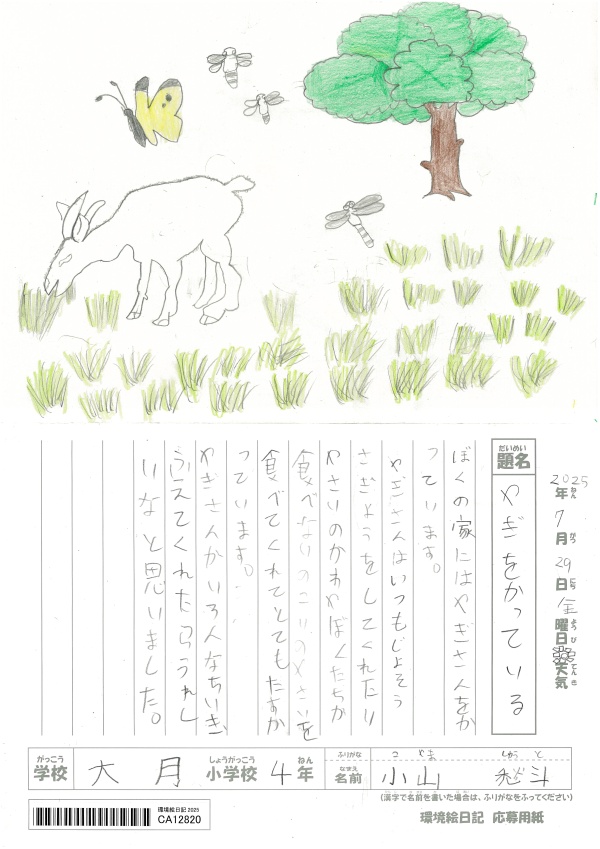 2025年7月29日金曜日天気
ねん がつ にち ようび てんき
だいめい
題名
やぎをかっている
ぼくの家にはやぎさんをか
っています。
やぎさんはいつもじょそう
さぎょうをしてくれたり
やさいのかわやぼくたちが
食べないのこりのやさいを
食べてくれてとてもたすか
っています。
やぎさんがいろんなちいき、
ふえてくれたらうれし
いなと思いました。
がっこう しょうがっこう ねん ふりがな こやま しゅうと
学校 大月 小学校 4年 なまえ 名前 小山 斗
(漢字で名前を書いた場合は、ふりがなをふってください)
環境絵日記 2025
CA12820
環境絵日記 応募用紙